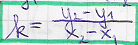 k = \frac{y_2 - y_1}{x_2 - x_1}